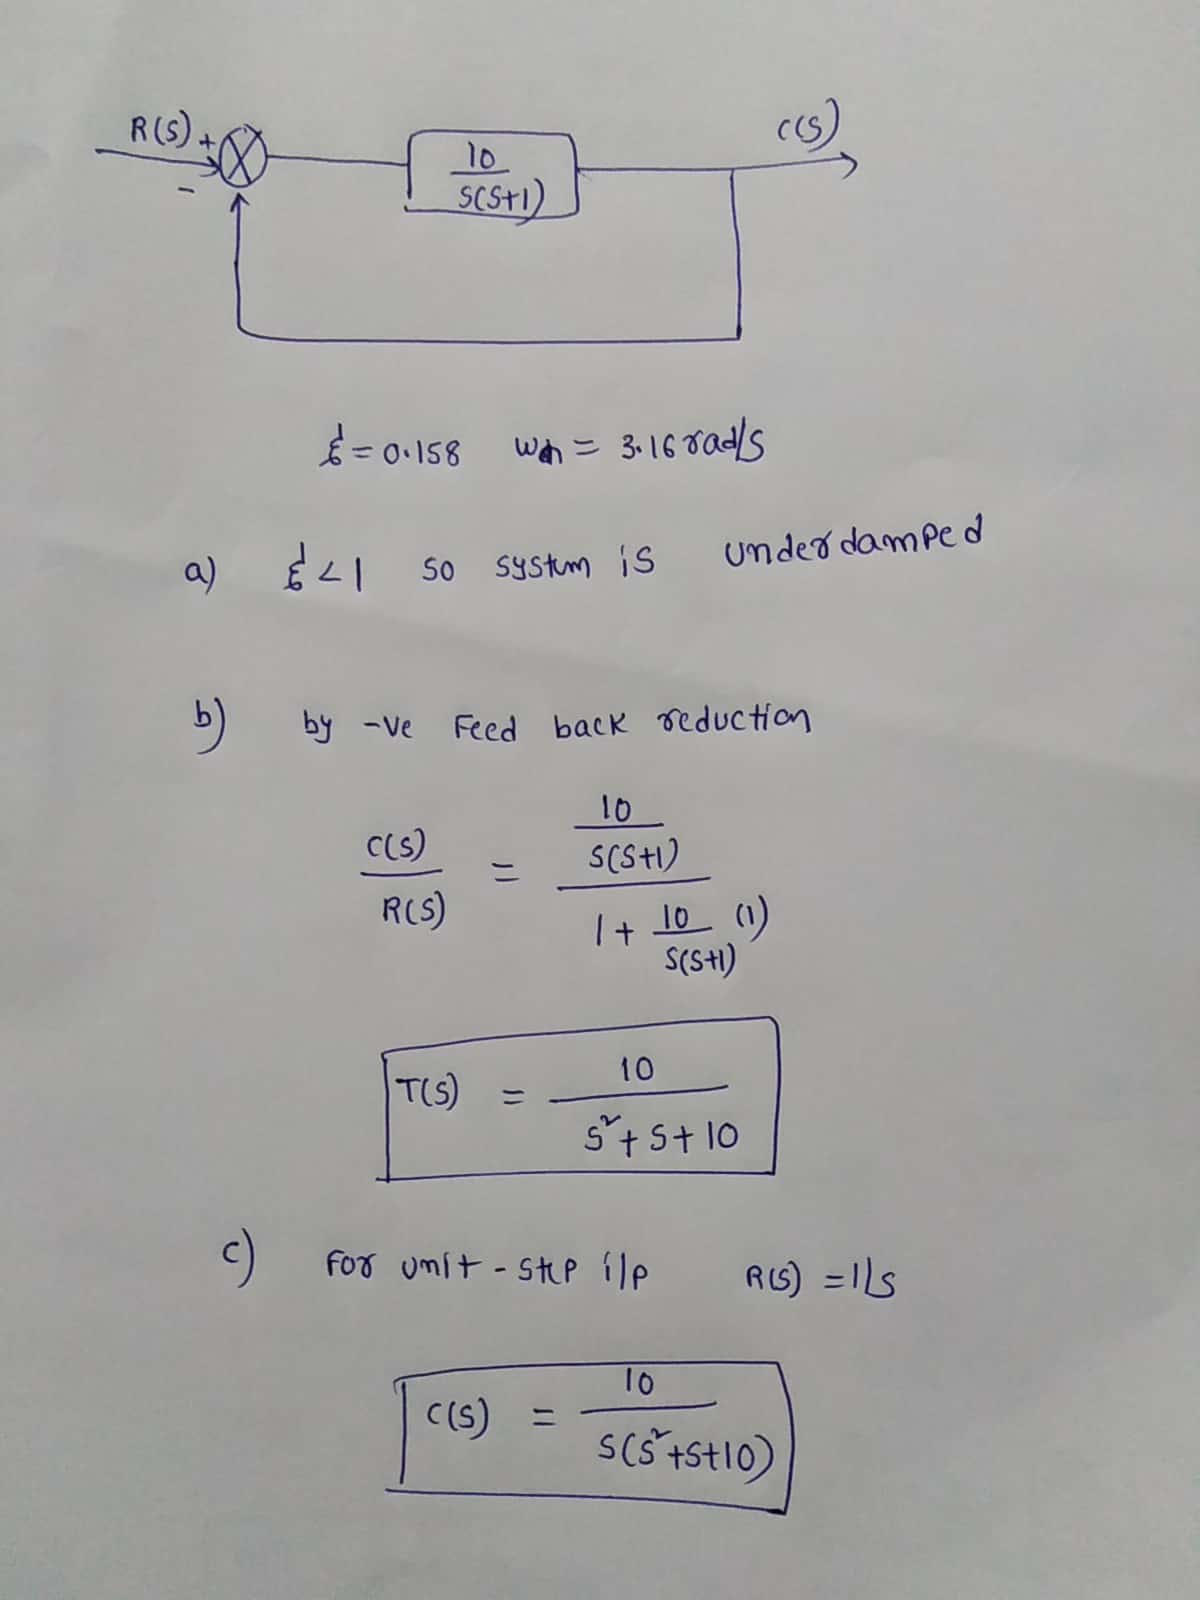 R(S) + - 10/S(S+1) C(S)
ξ = 0.158 ωn = 3.16 rad/s
a) ξ < 1 so system is underdamped
b) by -ve Feed back reduction
C(S)/R(S) = (10/S(S+1)) / (1 + 10/S(S+1) (1))
T(S) = 10/(S² + S + 10)
c) For unit - step i/p R(S) = 1/s
C(S) = 10/(S(S² + S + 10))